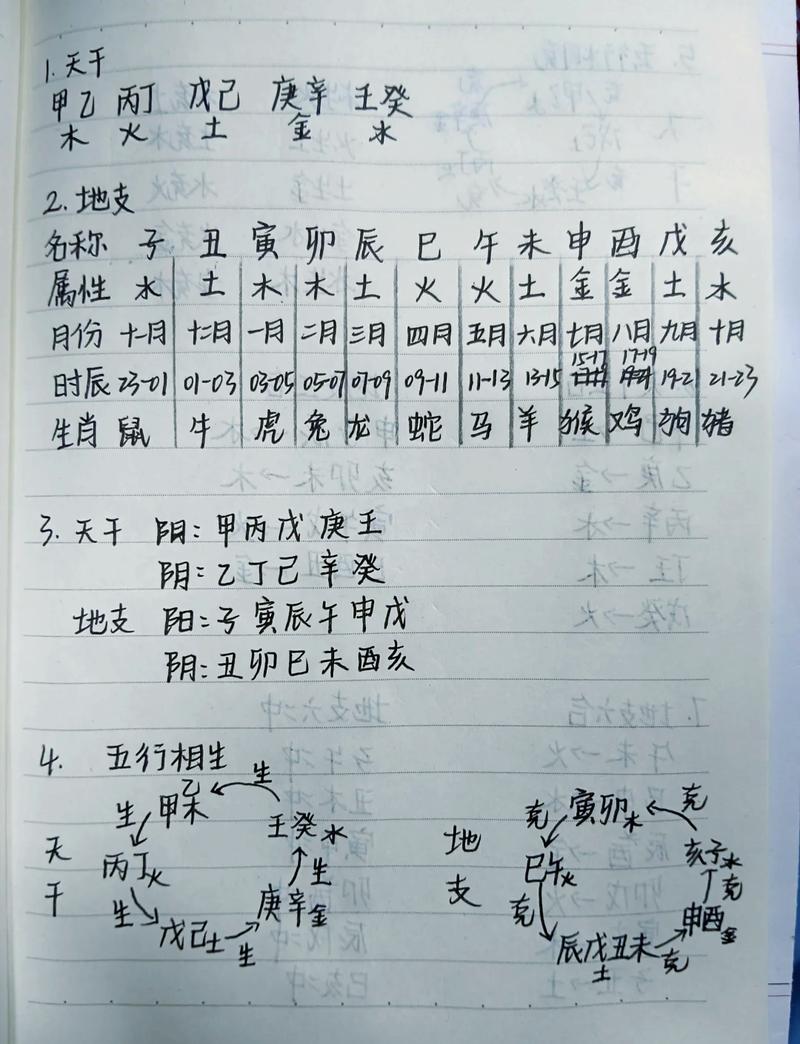 1. 天干
甲乙 丙丁 戊己 庚辛 壬癸
木 火 土 金 水
2. 地支
名称 子 丑 寅 卯 辰 巳 午 未 申 酉 戊 亥
属性 水 土 木 木 土 火 火 土 金 金 土 水
月份 十一月 十二月 一月 二月 三月 四月 五月 六月 七月 八月 九月 十月
15-17 17-19
时辰 23-01 01-03 03-05 05-07 07-09 09-11 11-13 13-15 19-21 21-23
生肖 鼠 牛 虎 兔 龙 蛇 马 羊 猴 鸡 狗 猪
3. 天干 阴: 甲丙戊庚壬
阴: 乙丁己辛癸
地支 阳: 子寅辰午申戊
阴: 丑卯巳未酉亥
4. 五行相生
天干
甲乙木
生
丙丁火
生
戊己土
生
庚辛金
生
壬癸水
生
地支
寅卯木
克
巳午火
克
辰戊丑未土
克
申酉金
克
亥子水
克